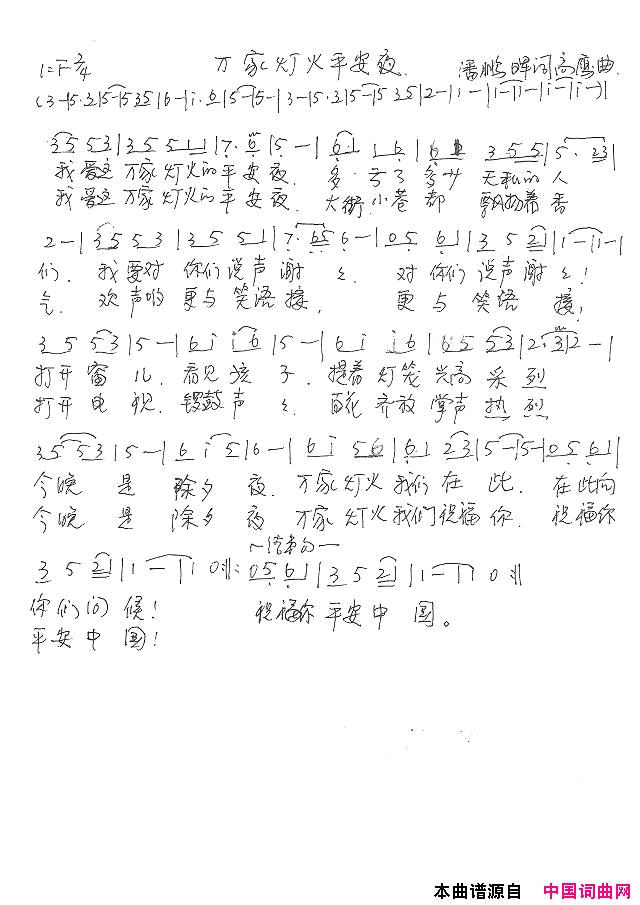 万家灯火平安夜
1=F 2/4 潘鹏晖词 高鹰曲
(3-|5·2|5-|5 35|6-|i·6|5-|5-|3-|5·2|5-|5 35|2-|1-|1-|1-|1-|1-)|
35 53|35 51|7·6|5-|61 16|61 355|5·23|
我爱这万家灯火的平安夜. 多亏了多少无私的人
我爱这万家灯火的平安夜. 大街小巷都飘扬着香
2-|35 53|35 51|7·65|6-|05 61|35 21|1-|1-|
们. 我要对你们说声谢谢. 对你们说声谢谢!
气. 欢声哟更与笑语接, 更与笑语接!
35 53|5-|6i i6|5-|6i i6|65 53|2·3|2-|
打开窗儿. 看见孩子. 提着灯笼兴高采烈
打开电视. 锣鼓声声. 百花齐放掌声热烈
35 53|5-|6i 5|6-|6i 56|61 23|5-|5-|05 61|
今晚是除夕夜. 万家灯火我们在此. 在此向
今晚是除夕夜 万家灯火我们祝福你. 祝福你
~结束句~
35 21|1-|1 0:‖: 05 61|35 21|1-|1 0‖
你们问候! 祝福你平安中国。
平安中国!
本曲谱源自 中国词曲网